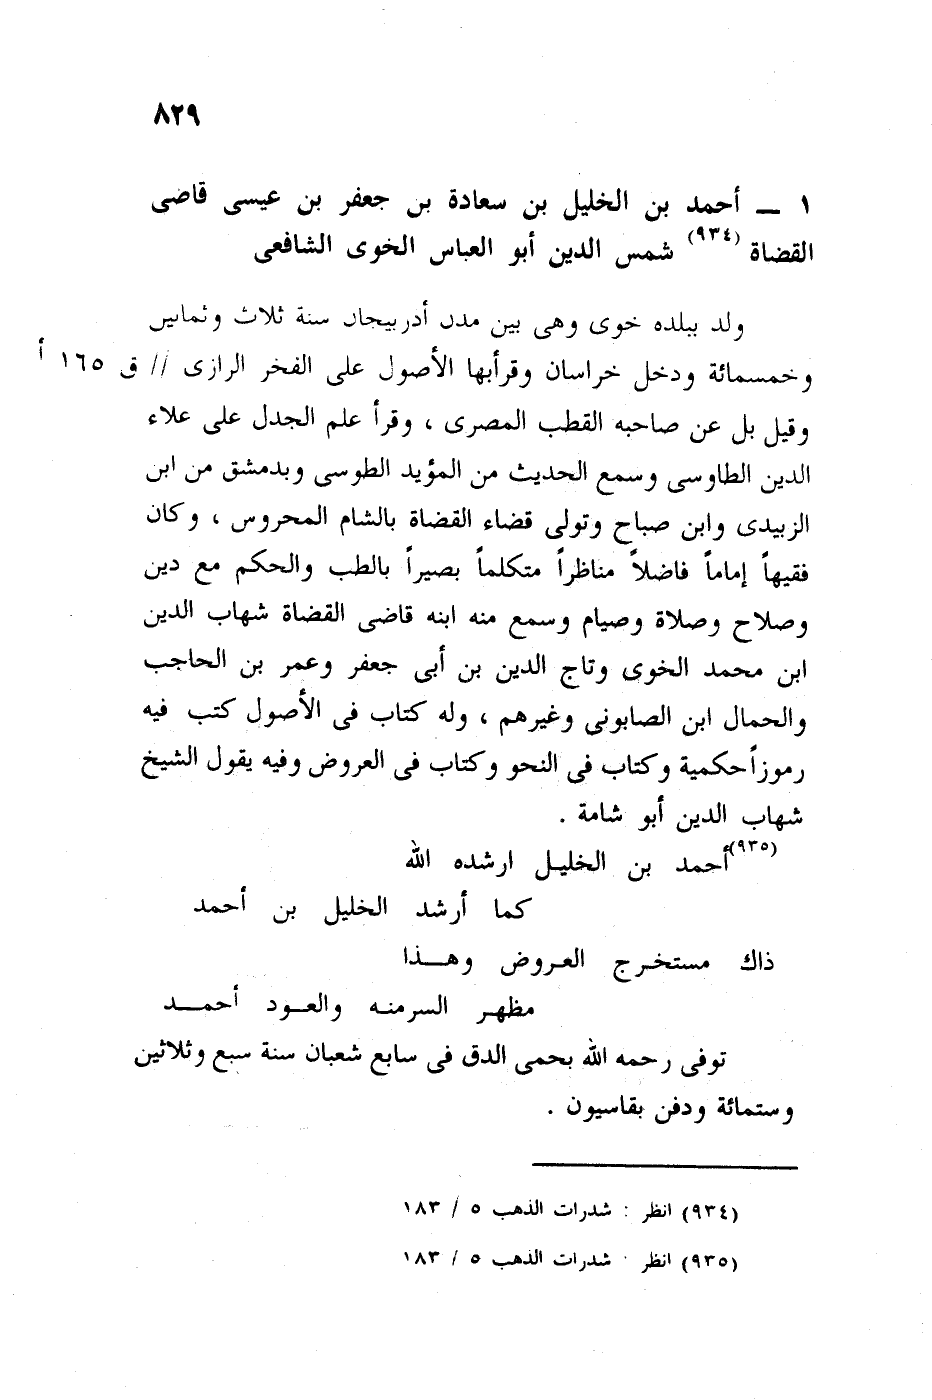 ٨٢٩
١ ــ أحمد بن الخليل بن سعادة بن جعفر بن عيسى قاضى
القضاة (٩٣٤) شمس الدين أبو العباس الخوى الشافعى
ولد ببلده خوى وهى بين مدن أدربيجان سنة ثلاث وثمانين
وخمسمائة ودخل خراسان وقرأبها الأصول على الفخر الرازى // ق ١٦٥ أ
وقيل بل عن صاحبه القطب المصرى ، وقرأ علم الجدل على علاء
الدين الطاوسى وسمع الحديث من المؤيد الطوسى وبدمشق من ابن
الزبيدى وابن صباح وتولى قضاء القضاة بالشام المحروس ، وكان
فقيهاً إماماً فاضلاً مناظراً متكلماً بصيراً بالطب والحكم مع دين
وصلاح وصلاة وصيام وسمع منه ابنه قاضى القضاة شهاب الدين
ابن محمد الخوى وتاج الدين بن أبى جعفر وعمر بن الحاجب
والحمال ابن الصابونى وغيرهم ، وله كتاب فى الأصول كتب فيه
رموزاً حكمية وكتاب فى النحو وكتاب فى العروض وفيه يقول الشيخ
شهاب الدين أبو شامة .
(٩٣٥)أحمد بن الخليل ارشده الله
كما أرشد الخليل بن أحمد
ذاك مستخرج العروض وهــذا
مظهر السرمنه والعود أحمــد
توفى رحمه الله بحمى الدق فى سابع شعبان سنة سبع وثلاثين
وستمائة ودفن بقاسيون .
(٩٣٤) انظر : شدرات الذهب ٥ / ١٨٣
(٩٣٥) انظر : شدرات الذهب ٥ / ١٨٣